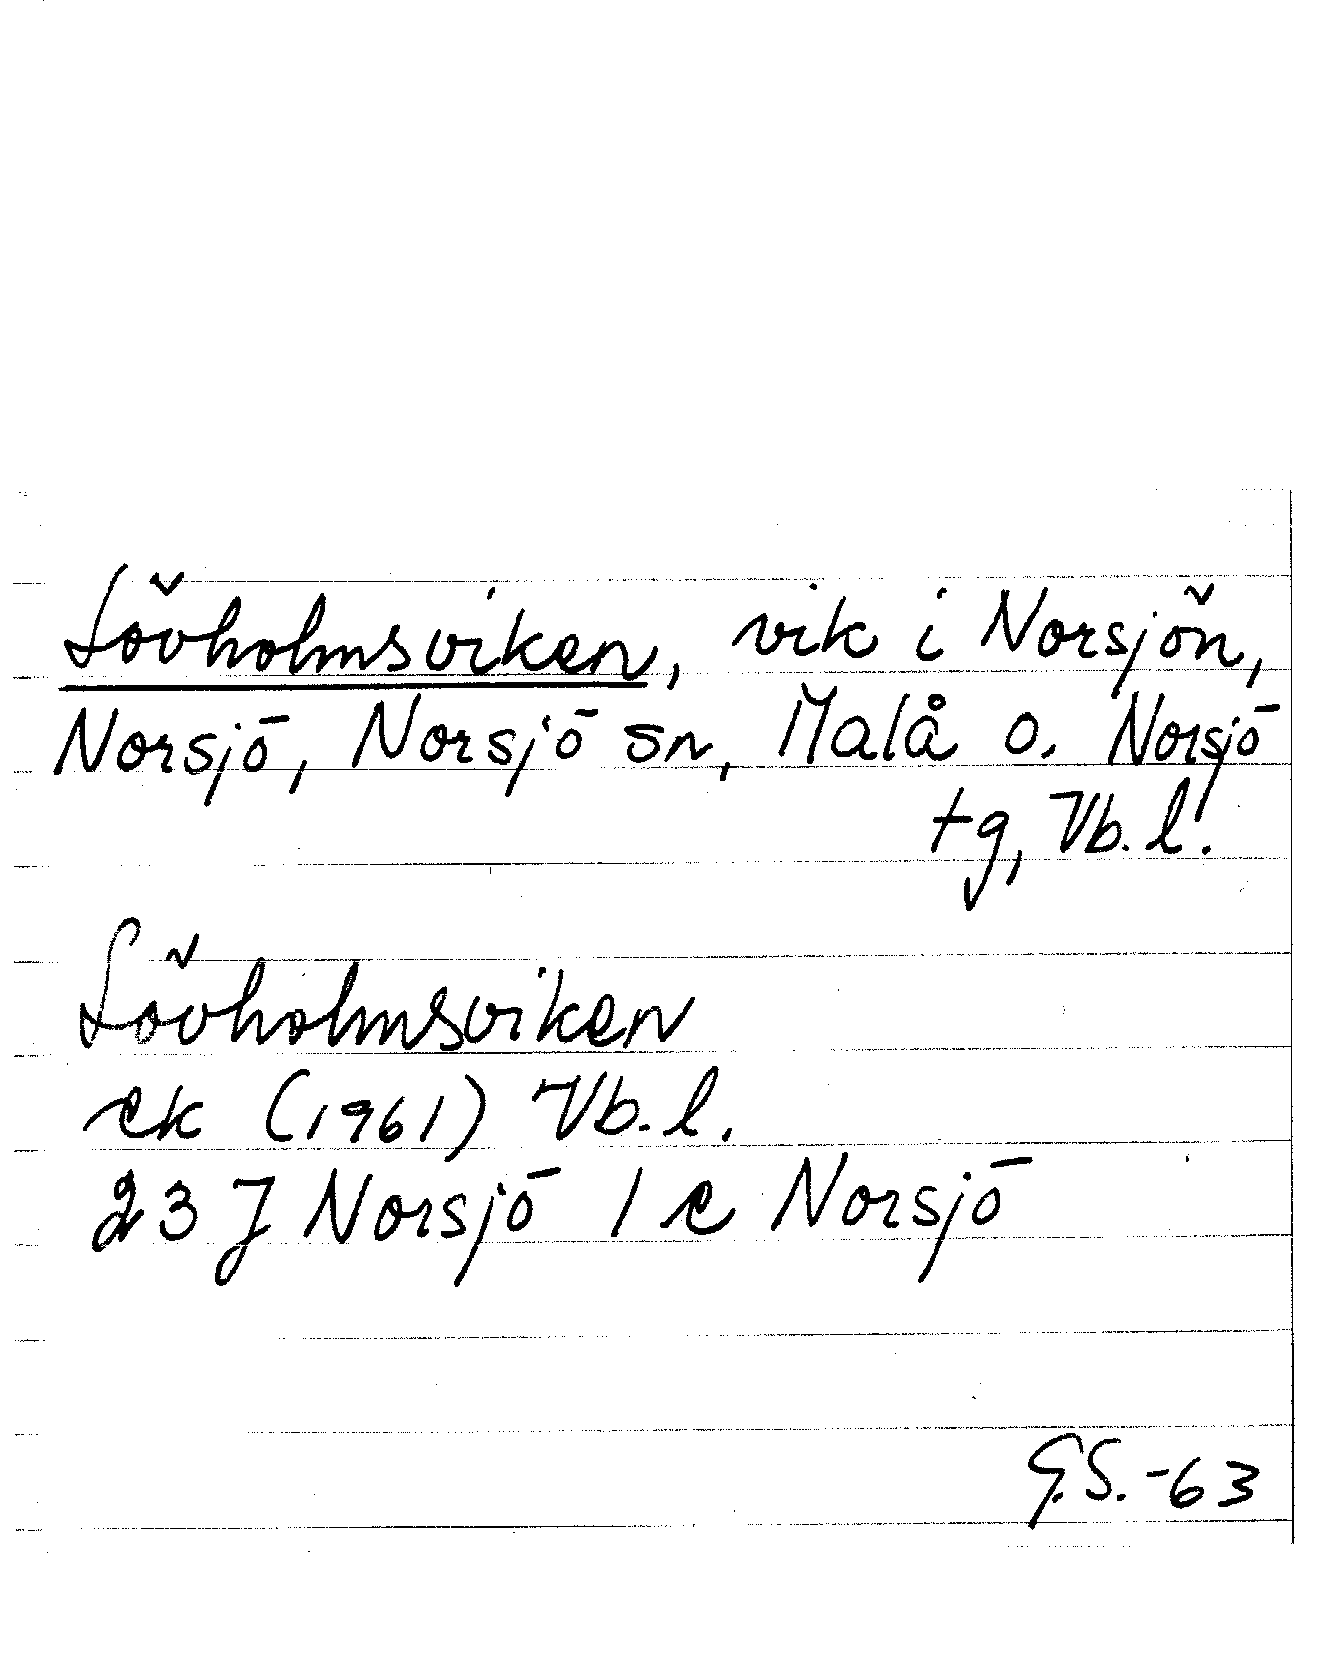 Lövholmsviken, vik i Norsjön,
Norsjö, Norsjö sn, Malå o. Norsjö
tg, Vb. l.
Lövholmsviken
ek (1961) Vb. l.
23 J Norsjö 1 e Norsjö
G.S. -63